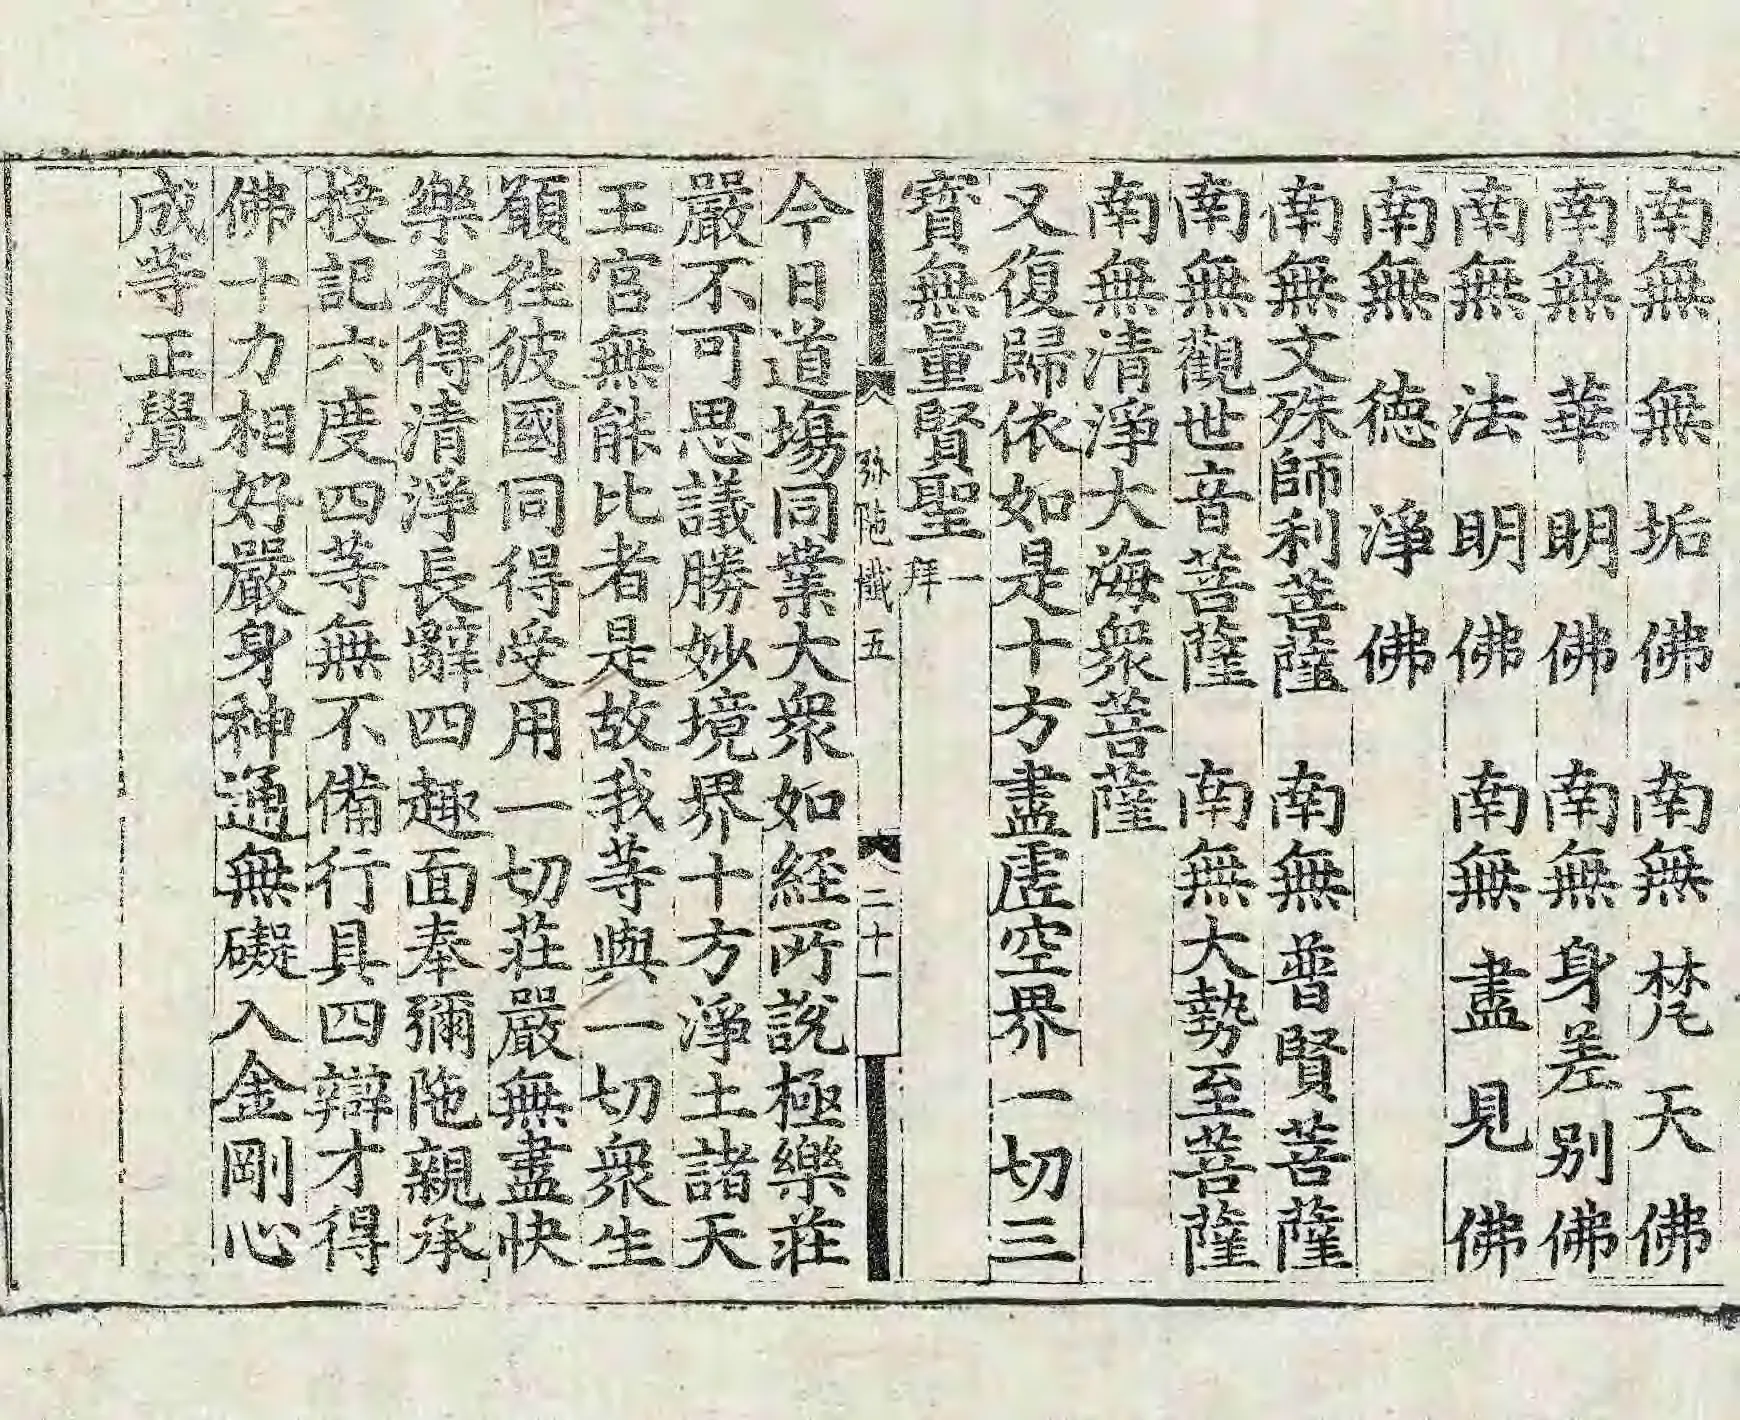 南無無垢佛　南無梵天佛
南無華明佛　南無身差別佛
南無法明佛　南無盡見佛
南無德淨佛
南無文殊師利菩薩　南無普賢菩薩
南無觀世音菩薩　南無大勢至菩薩
南無清淨大海衆菩薩
又復歸依如是十方盡虛空界一切三
寳無量賢聖一拜
弥陁懺五　二十一
今日道塲同業大衆如經所說極樂莊
嚴不可思議勝妙境界十方淨土諸天
王官無能比者是故我等與一切衆生
願徃彼國同得受用一切莊嚴無盡快
樂永得清淨長辭四趣面奉彌陁親承
授記六度四等無不備行具四辯才得
佛十力相好嚴身神通無礙入金剛心
成等正覺